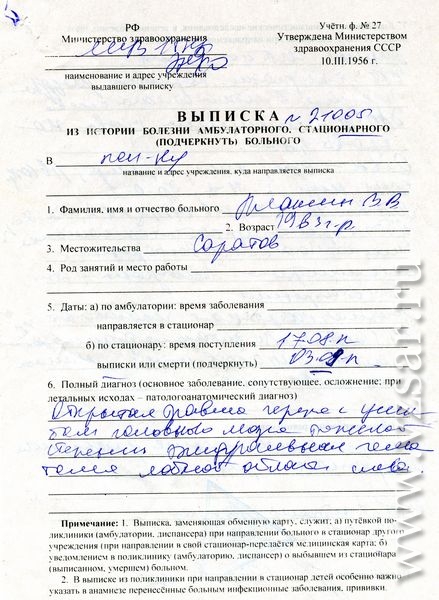 РФ
Министерство здравоохранения
наименование и адрес учреждения
выдавшего выписку
Учётн. ф. № 27
Утверждена Министерством
здравоохранения СССР
10.III.1956 г.
ВЫПИСКА N 21005
ИЗ ИСТОРИИ БОЛЕЗНИ АМБУЛАТОРНОГО, СТАЦИОНАРНОГО
(ПОДЧЕРКНУТЬ) БОЛЬНОГО
В пол-ку
название и адрес учреждения, куда направляется выписка
1. Фамилия, имя и отчество больного ВВ
2. Возраст 1983 г.р.
3. Местожительства Саратов
4. Род занятий и место работы
5. Даты: а) по амбулатории: время заболевания
направляется в стационар
б) по стационару: время поступления 17.08.
выписки или смерти (подчеркнуть) 03.
6. Полный диагноз (основное заболевание, сопутствующее, осложнение; при
летальных исходах – патологоанатомический диагноз)
Открытая травма черепа с уши-
бом головного мозга тяжелой
степени. Эпидуральная гема-
тома лобной области слева.
Примечание: 1. Выписка, заменяющая обменную карту, служит; а) путёвкой по-
ликлиники (амбулатории, диспансера) при направлении больного в стационар друго
учреждения (при направлении в свой стационар-передаётся медицинская карта; б)
уведомлением в поликлинику (амбулаторию, диспансер) о выбывшем из стационара
(выписанном, умершем) больном.
2. В выписке из поликлиники при направлении в стационар детей особенно важно
указать в анамнезе перенесённые больным инфекционные заболевания, прививки.
www.sarbc.ru